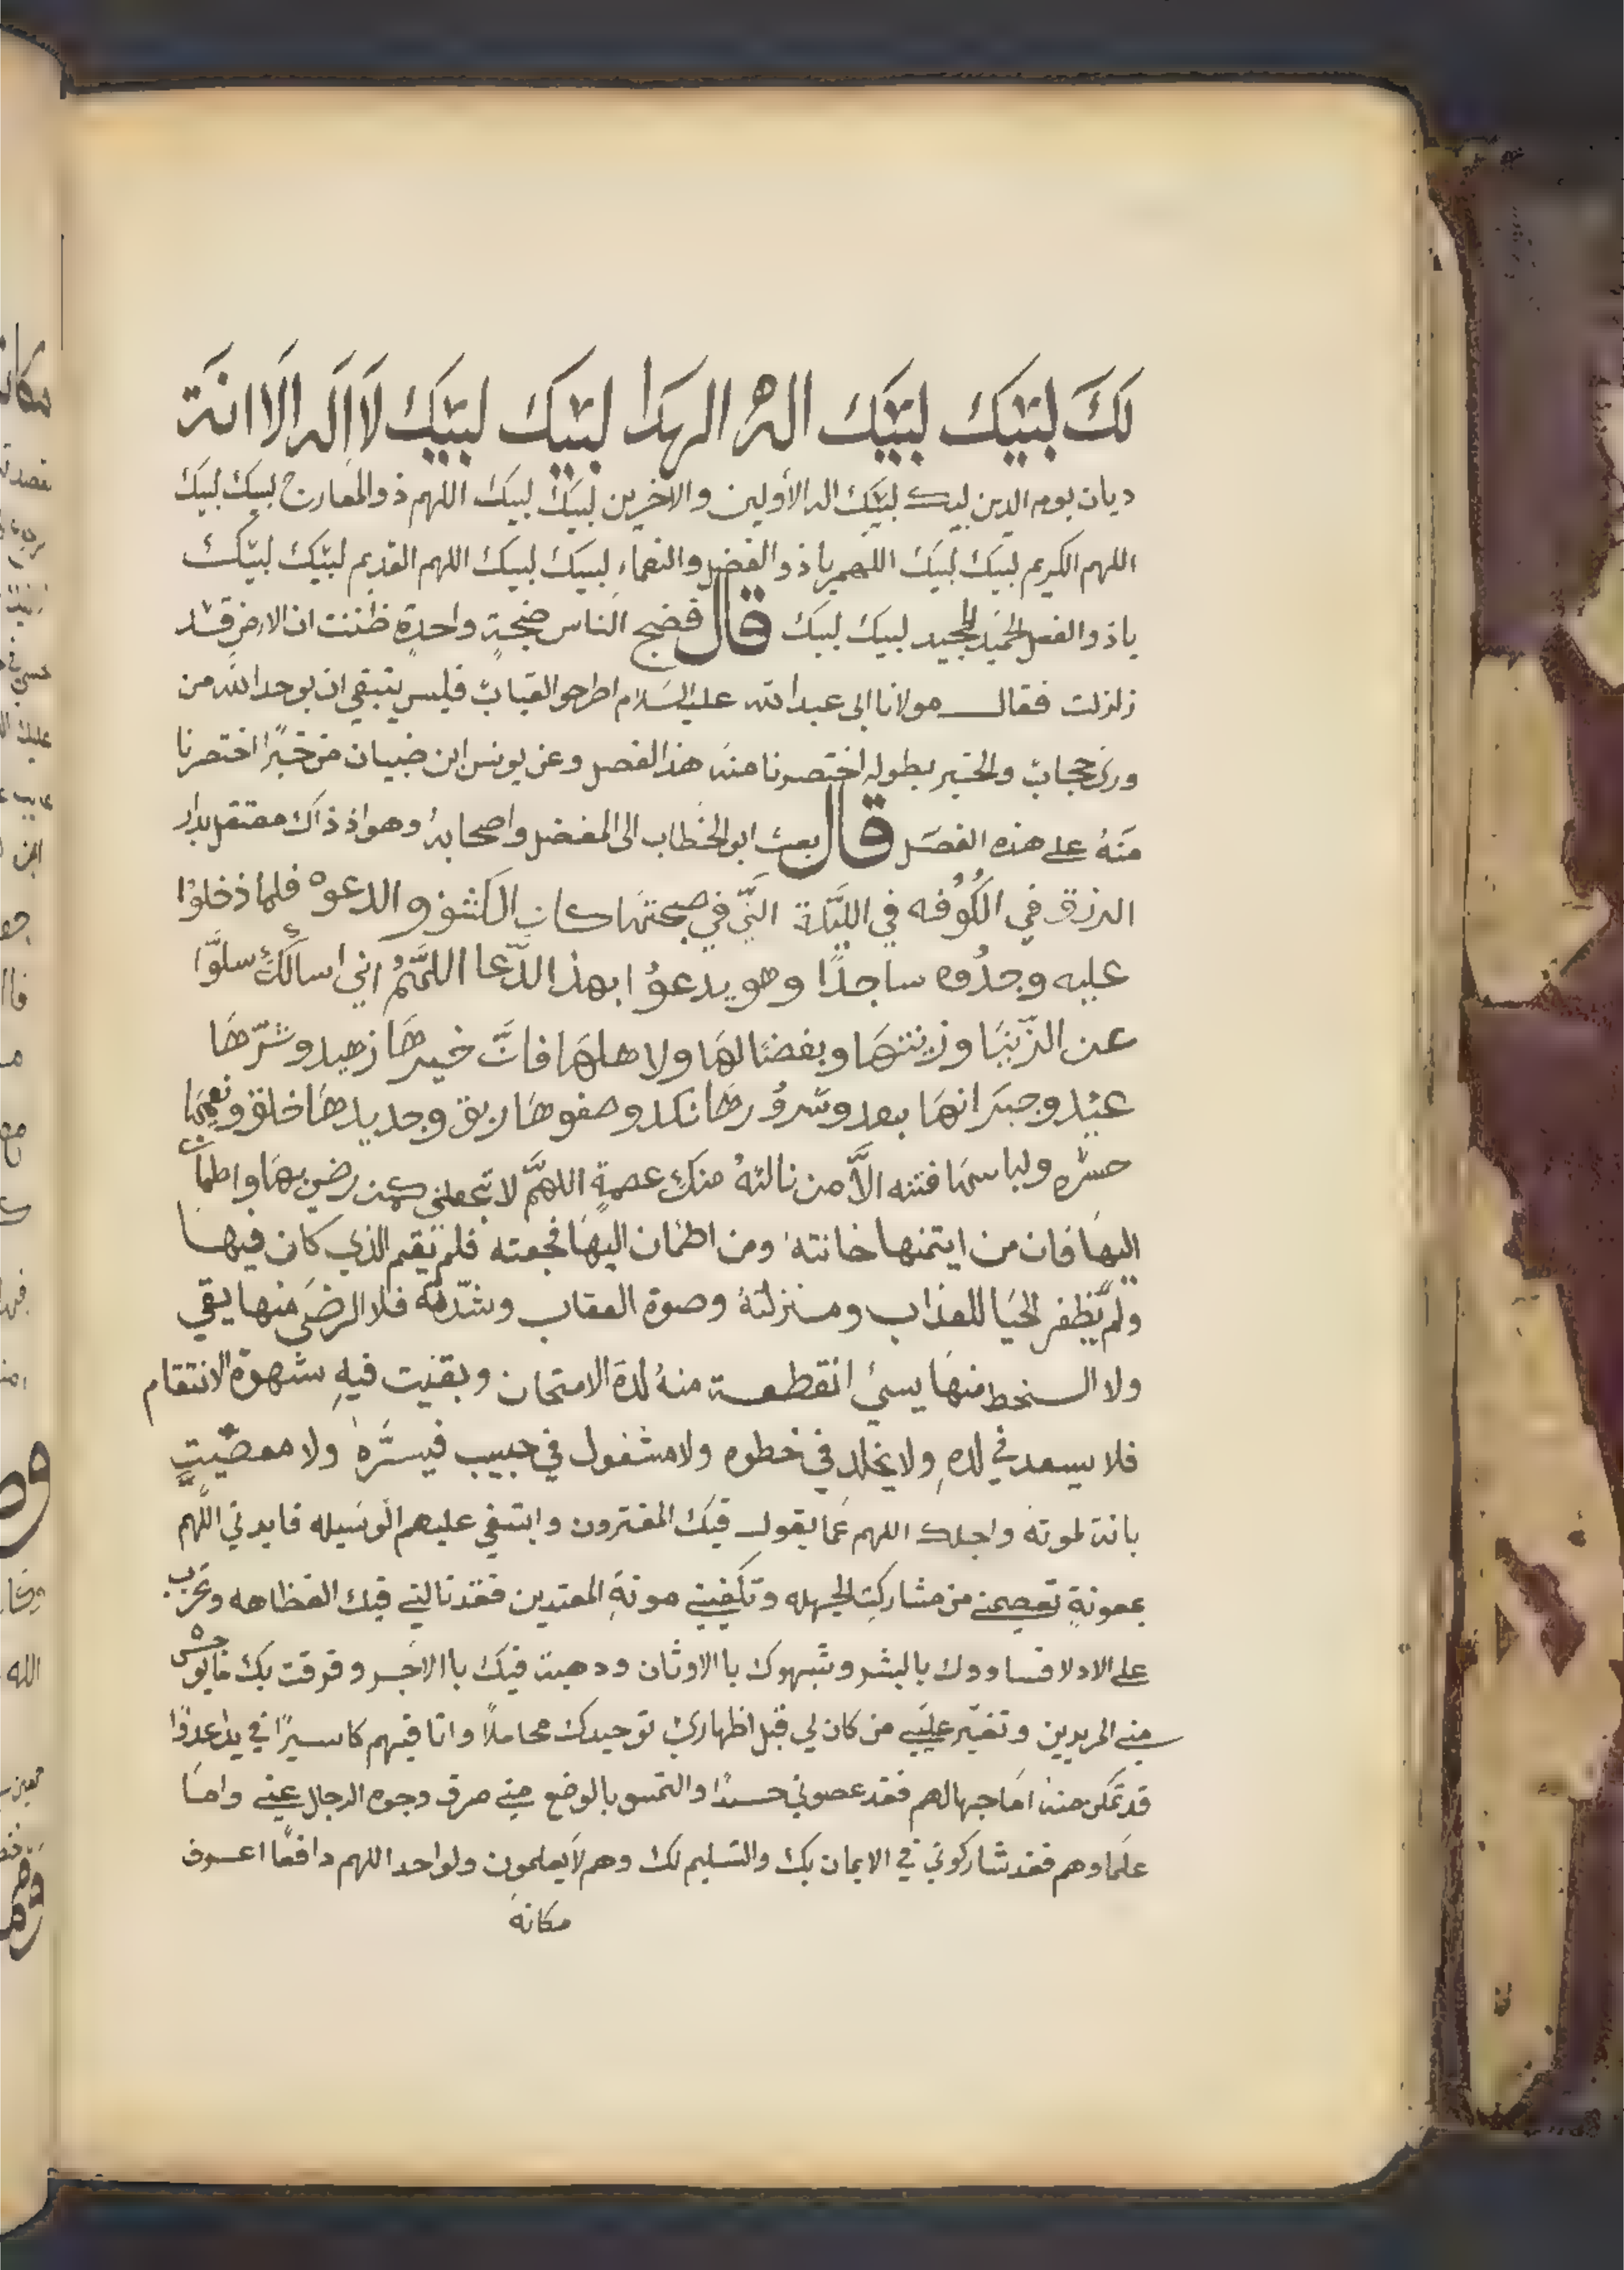 لكَ لبيّك لبيّك اله الهدا لبيّك لبيّك لا اله الا انة
ديان يوم الدين لبيك لبيّك اله الأولين والاخرين لبيك لبيك اللهم ذو المعارج لبيك لبيك
اللهم الكريم لبيك لبيك اللهم ياذو الفضل والنعماء لبيك لبيك اللهم القديم لبيّك لبيّك
ياذو الفضل الحميد المجيد لبيك لبيك قال فضج الناس ضجةٍ واحدةٍ ظننت ان الارض قد
زلزلت فقال مولانا ابي عبد الله عليه السلام اطرحو القباب فليس ينبغي ان يوحد الله من
ورى حجاب والخبر بطوله اختصرنا منه هذا الفصل وعن يونس ابن ضبيان من خبرًا اختصرنا
منهُ على هذه الفصل قال بعث ابو الخطاب الى المفضل واصحابهُ وهو اذ ذاك معتقل بدار
الرزق في الكُوُفه في الليّلة التّي في صبحتها كان الكشف والدعوه فلما دخلوا
عليه وجدُوه ساجدًا وهو يدعوُا بهذا الدّعا اللهّمُ اني اسالكَ سلوًّا
عن الدّنيا وزينتهَا وبغضًا لهَا ولاهلهَا فانَّ خيرهَا زهيد وشرّهَا
عتيد وجيرانهَا بعد وسروُرهَا نكد وصفوهَا ريق وجديدهَا خلق ونعيمها
حسره ولباسهَا فتنه الاَّ من نالتهُ منكِ عصمةٍ اللهمَّ لا تجعلني كمن رضي بهَا واطمأن
اليها فان من ايتمنها خانته ومن اطمان اليهَا فجعته فلم يقم الذي كان فيها
ولم يظفر الحيا للعذاب ومنزلتهُ وصوة العقاب وشدّته فلا الرضَى منها يقي
ولا السخط منهَا يسئ انقطعة منهُ لدة الامتحان وبقيت فيهِ شهوة الانتقام
فلا يسعد في لدهِ ولا يخلد في خطوه ولا مشغول في حبيب فيسرَّهُ ولا معصيّتٍ
بانة لموته واجلك اللهم عَما يقول فيك المفترون وابتغي عليهم الوسيله فايدني اللهم
بمعونةٍ تعصمني من مشاركتِ الجهله وتكفيني مونةِ المعتدين فقد نالني فيك الفظاهه
على الاد لا فساوودك بالبشر وشبهوك باالاوثان ودهبت فيك باالاخر وفرقت بك
مني المريدين وتغيّر عليّي من كان لي قبل اظهاري توحيدك محاملاً وانا فيهم كاسيرًا في يد اعدوًا
قد تمكن منه امَا جهالهم فقد عصوني حسدًا والتمسو بالوضع مني صرف وجوه الرجال عني وامَا
علماوهم فقد شاركوني في الايمان بك والتسليم لك وهم لا يعلمون ولو احد اللهم دافعًا اعرف
مكانهُ